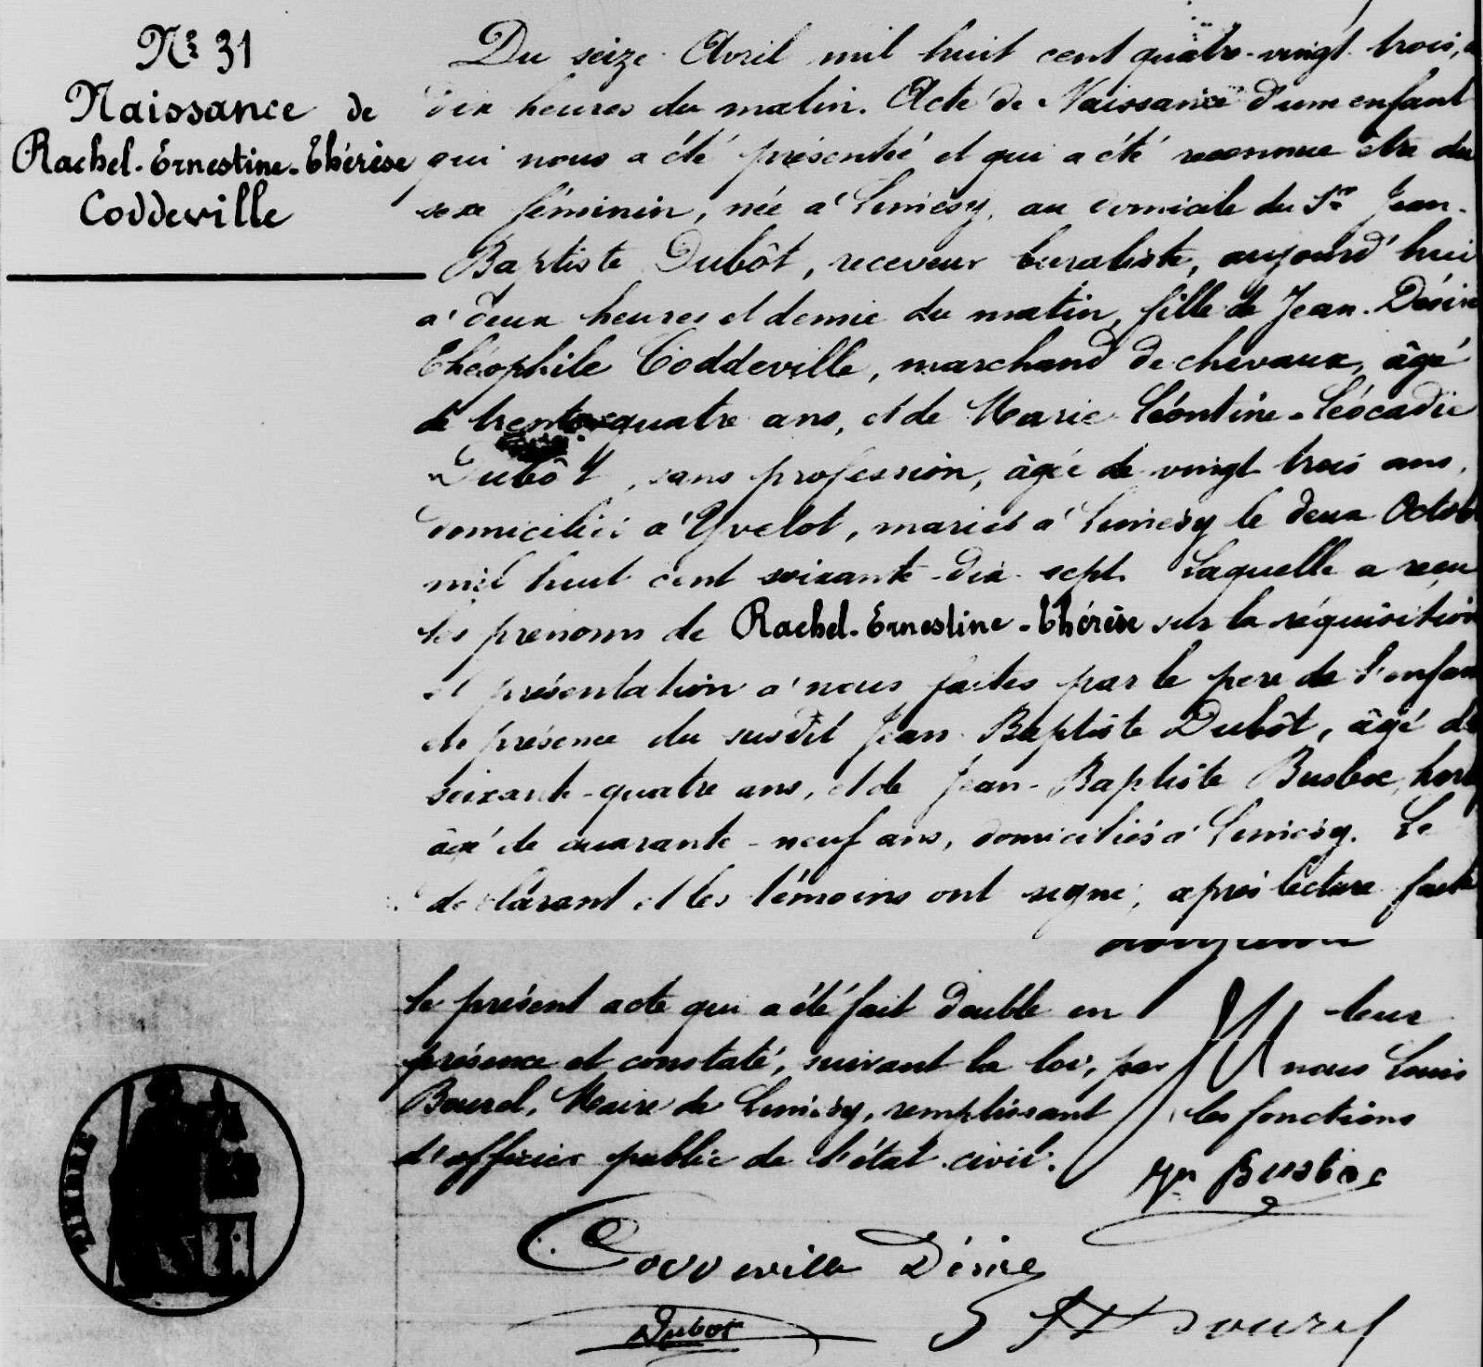 Nº 31
Naissance de
Rachel-Ernestine-Thérèse
Coddeville
Du seize Avril mil huit cent quatre-vingt trois, à
dix heures du matin. Acte de Naissance d'une enfant
qui nous a été présenté et qui a été reconnue être du
sexe féminin, née à Limésy, au domicile du Sr Jean-
Baptiste Dubôt, receveur buraliste, aujourd'hui
à deux heures et demie du matin, fille de Jean-Désiré
Théophile Coddeville, marchand de chevaux, âgé
de trente-quatre ans, et de Marie-Léontine-Léocadie
Dubôt, sans profession, âgée de vingt trois ans,
domiciliés à Yvetot, mariés à Limésy le deux Octob
mil huit cent soixante-dix-sept. Laquelle a reçu
les prénoms de Rachel-Ernestine-Thérèse sur la réquisition
et présentation à nous faites par le père de l'enfan
en présence du susdit Jean-Baptiste Dubôt, âgé de
soixante-quatre ans, et de Jean-Baptiste Busboc, horl
âgé de quarante-neuf ans, domiciliés à Limésy. Le
déclarant et les témoins ont signé, après lecture faite
le présent acte qui a été fait double en leur
présence et constaté, suivant la loi, par nous Louis
Bourel, Maire de Limésy, remplissant les fonctions
d'officier public de l'état civil.
Busboc
Coddeville Désiré
Dubot
Bourel
TIMBRE